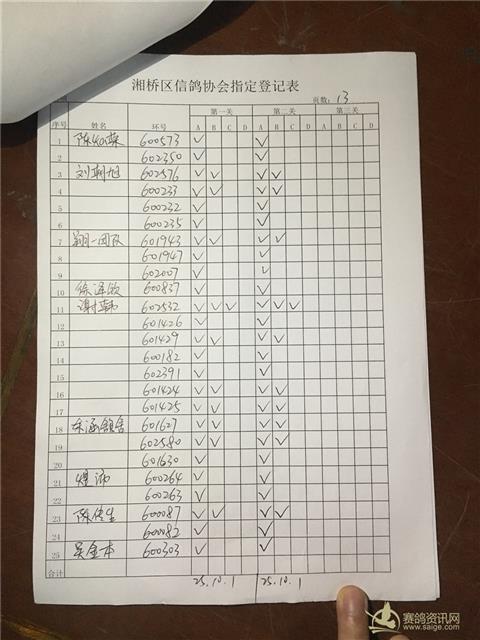 湘桥区信鸽协会指定登记表
页数: 13
序号 姓名 环号 第一关 第二关 第三关
A B C D A B C D A B C D
1 600573 ✓ ✓
2 602350 ✓ ✓
3 刘翔旭 602576 ✓ ✓ ✓ ✓
4 600233 ✓ ✓ ✓ ✓
5 600232 ✓ ✓
6 600235 ✓ ✓
7 601943 ✓ ✓ ✓ ✓
8 601947 ✓ ✓
9 602007 ✓ ✓
10 600837 ✓ ✓
11 602532 ✓ ✓ ✓ ✓ ✓ ✓
12 601426 ✓ ✓
13 601429 ✓ ✓ ✓ ✓
14 600182 ✓ ✓
15 602391 ✓ ✓
16 601424 ✓ ✓ ✓ ✓
17 601425 ✓ ✓ ✓ ✓
18 余涵鸽舍 601627 ✓ ✓ ✓ ✓
19 602580 ✓ ✓ ✓ ✓
20 601630 ✓ ✓
21 600264 ✓ ✓
22 600263 ✓ ✓
23 600087 ✓ ✓ ✓ ✓
24 600082 ✓ ✓
25 吴金本 600303 ✓ ✓
合计 25.10.1 25.10.1
赛鸽资讯网
www.saige.com